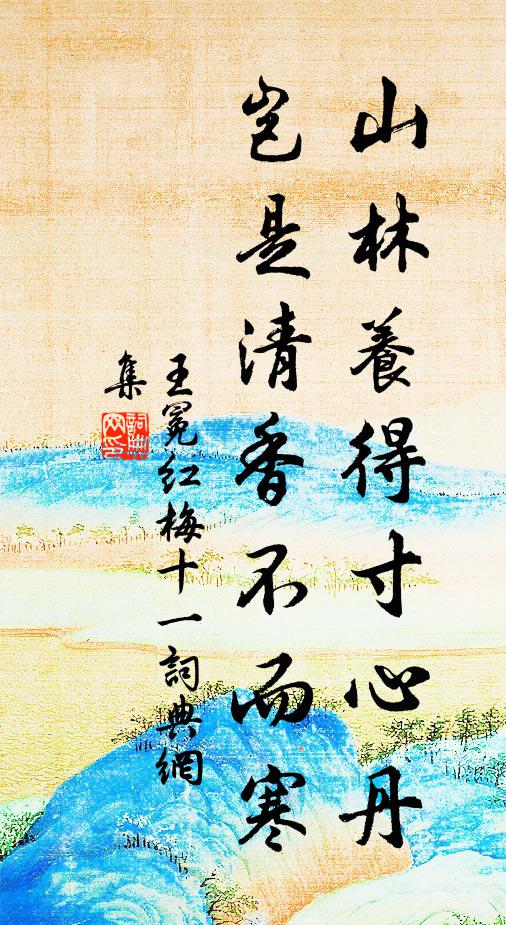 山林養得寸心丹
豈是清香不而寒
王冕红梅十一詞典網
集